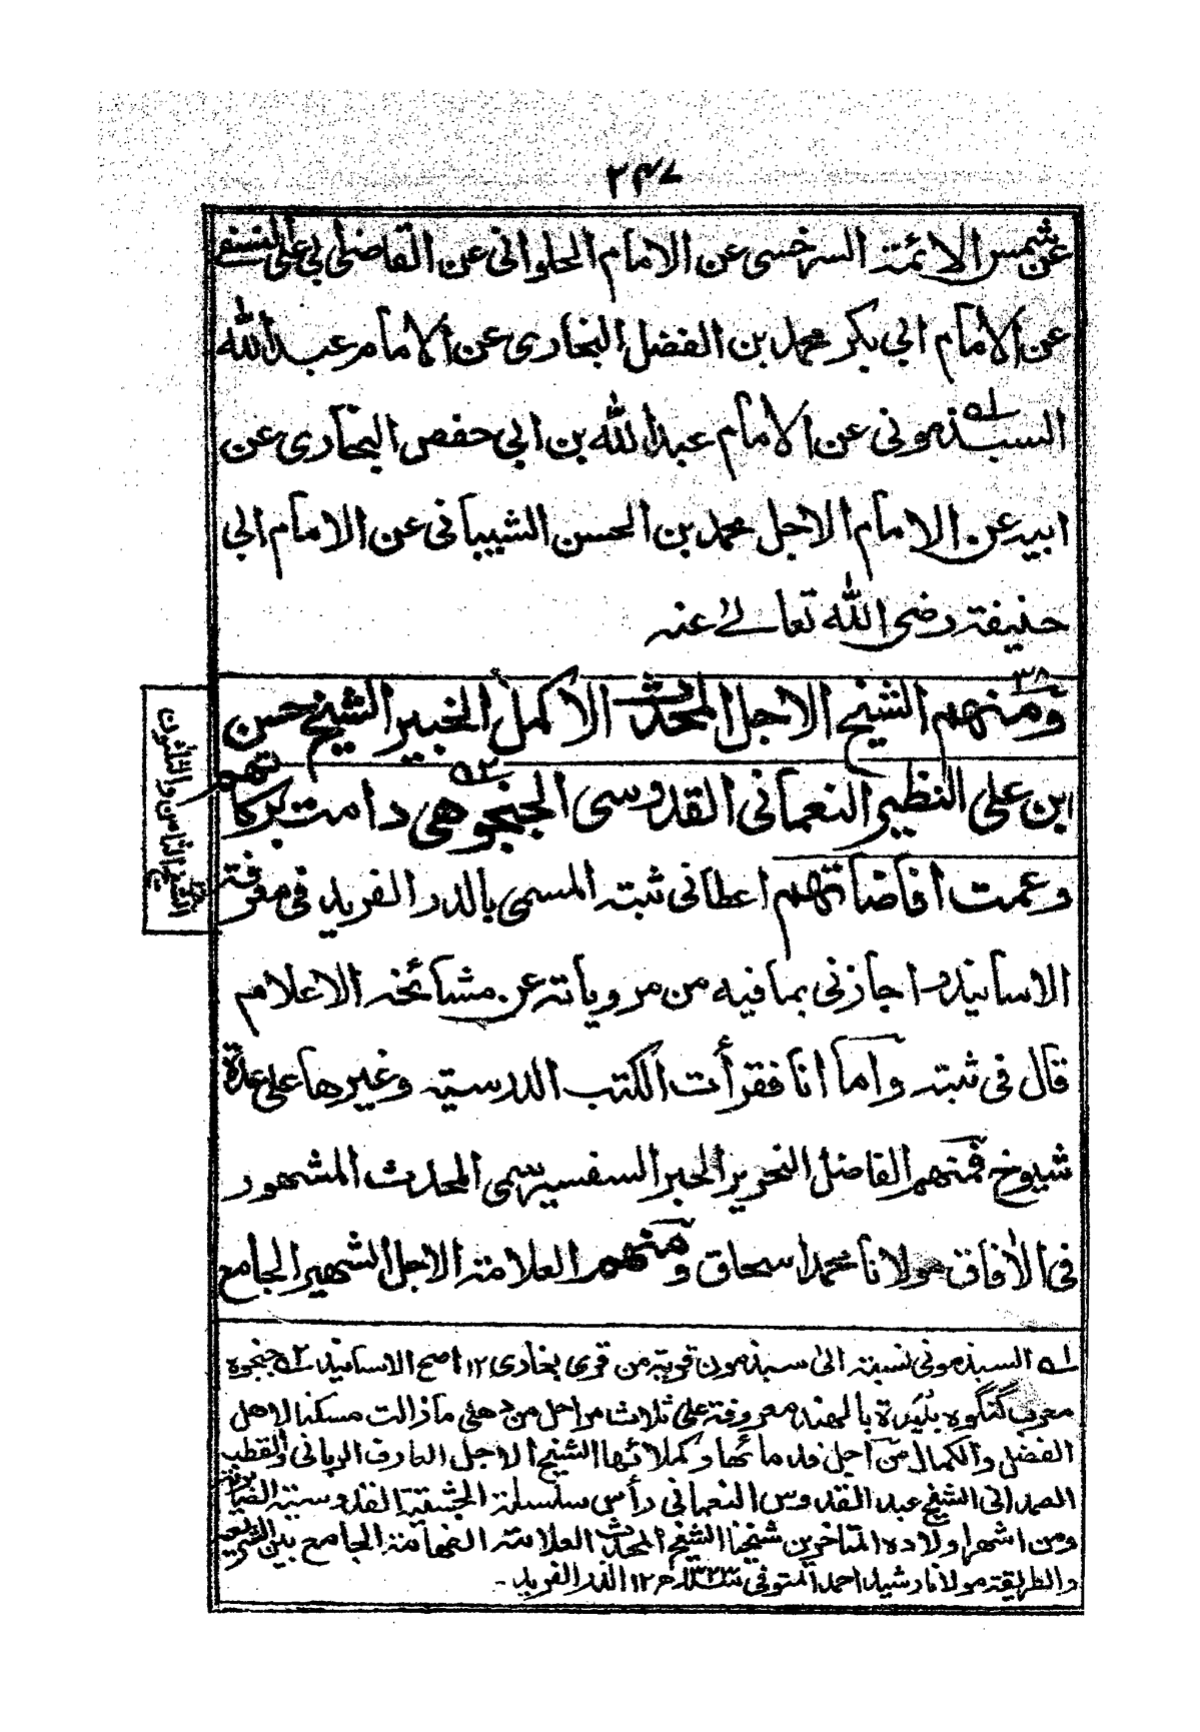 ٢٤٧
عن شمس الائمة السرخسی عن الامام الحلوانی عن القاضی ابی علی النسفی
عن الامام ابی بکر محمد بن الفضل البخاری عن الامام عبد الله
السبذمونی عن الامام عبد الله بن ابی حفص البخاری عن
ابیه عن الامام الاجل محمد بن الحسن الشیبانی عن الامام ابی
حنیفة رضی الله تعالےٰ عنه
٣٨
ومنهم الشیخ الاجل المحدث الأکمل الخبیر الشیخ حسن
ابن علی النظیر النعمانی القدوسی الجنجوهی دامت برکاتهم
وعمت افاضاتهم اعطانی ثبته المسمی بالدر الفرید فی معرفة
الاسانید واجازنی بما فیه من مرویاته عن مشائخه الاعلام
قال فی ثبته واما انا فقرأت الکتب الدرسیة وغیرها علی عدة
شیوخ فمنهم الفاضل النحریر الحبر السفسیر سمی المحدث المشهور
فی الآفاق مولانا محمد اسحاق ومنهم العلامة الاجل الشهیر الجامع
الثامن والثلاثون
له السبذمونی نسبة الی سبذمون قریة من قری بخاری ١٢ اصح الاسانید ٢ه جنجوه
معرب گنگوه بلیدة بالهند معروفة علی ثلاث مراحل من دهلی ما زالت مسکنا لاهل
الفضل والکمال من اجل قدمائها وکملائها الشیخ الاجل العارف الربانی والقطب
الصمدانی الشیخ عبد القدوس النعمانی رأس سلسلة الچشتیة القدوسیة
ومن اشهر اولاده المتاخرین شیخنا الشیخ المحدث العلامة الفهامة الجامع بین الشریعة
والطریقة مولانا رشید احمد المتوفی سنة ١٣٢٣ھ ١٢ الدر الفرید -